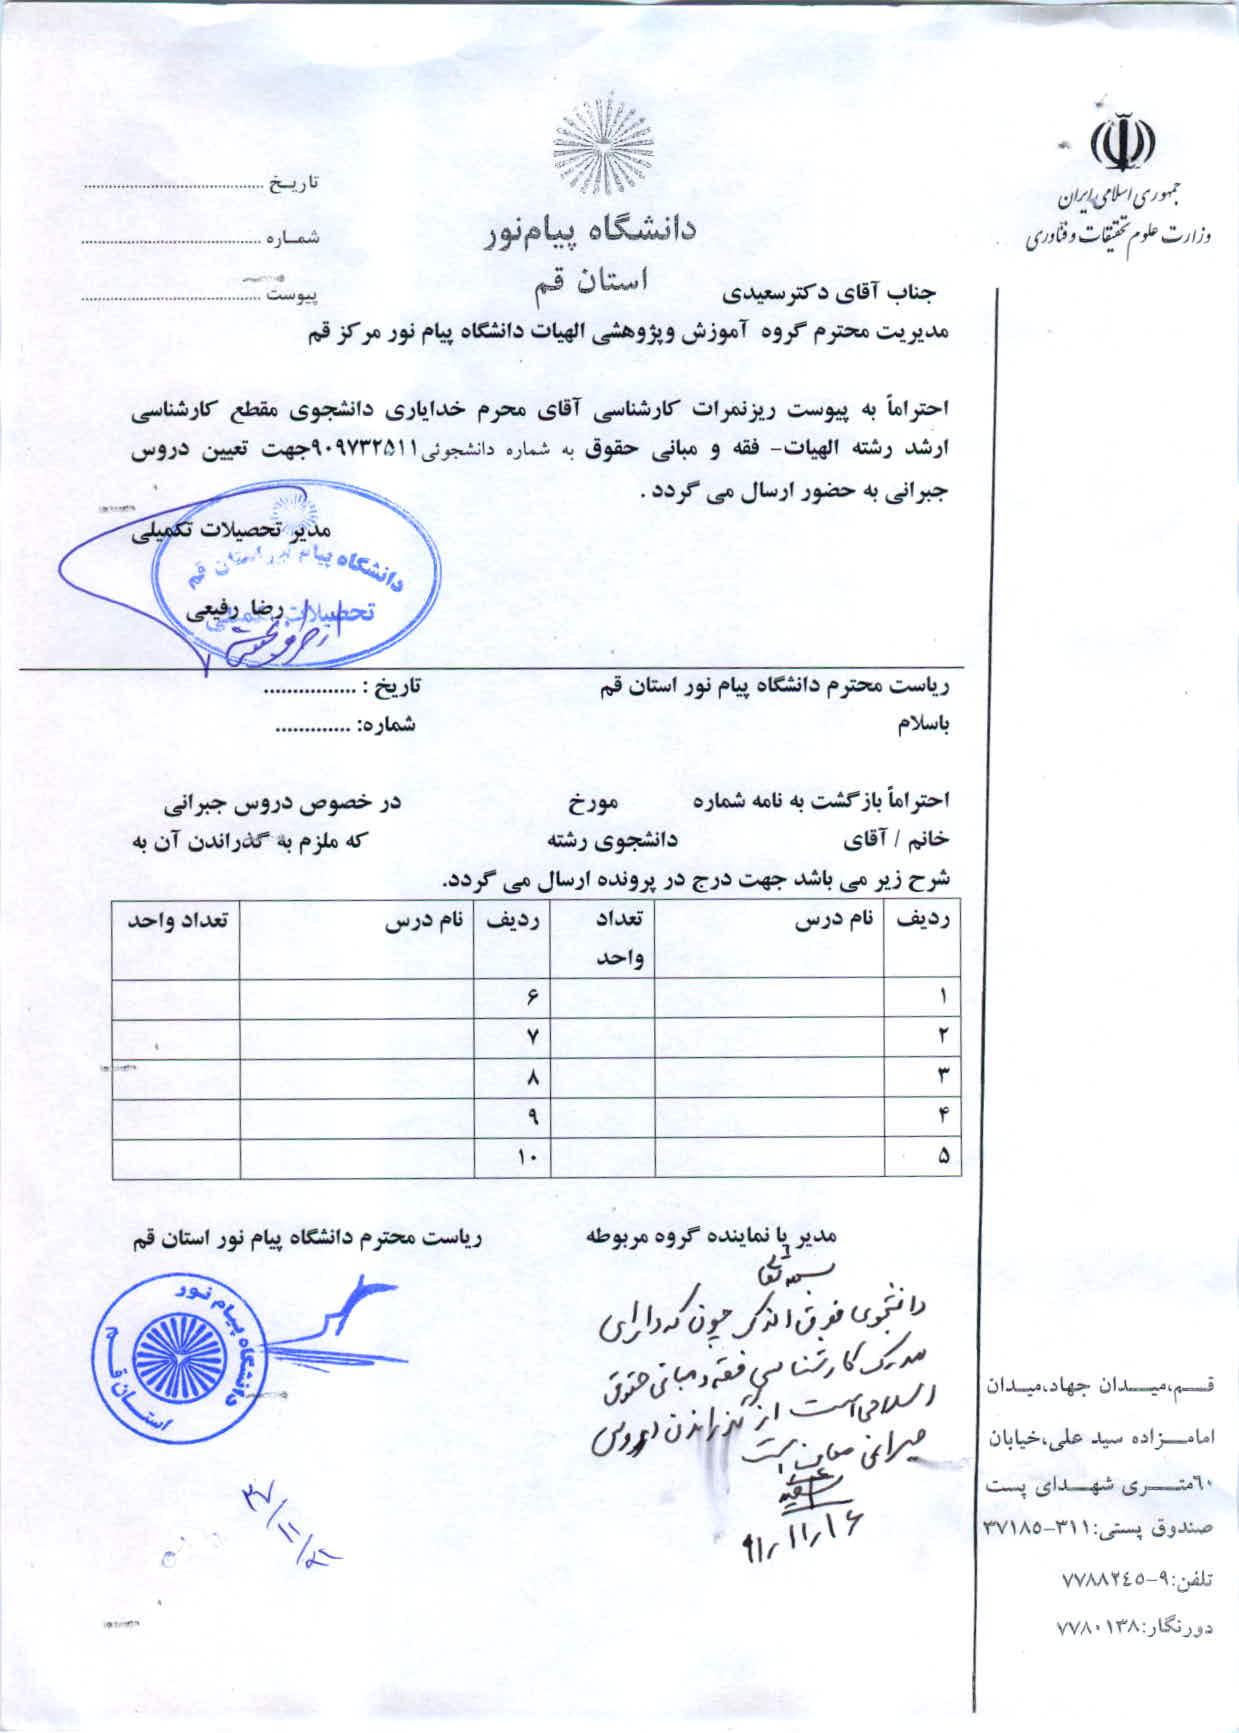 جمهوری اسلامی ایران
وزارت علوم تحقیقات و فناوری
دانشگاه پیام‌نور
استان قم
تاریـخ ......................................
شمـاره ......................................
پیوست ......................................
جناب آقای دکترسعیدی
مدیریت محترم گروه آموزش وپژوهشی الهیات دانشگاه پیام نور مرکز قم
احتراماً به پیوست ریزنمرات کارشناسی آقای محرم خدایاری دانشجوی مقطع کارشناسی
ارشد رشته الهیات- فقه و مبانی حقوق به شماره دانشجوئی۹۰۹۷۳۲۵۱۱جهت تعیین دروس
جبرانی به حضور ارسال می گردد .
مدیر تحصیلات تکمیلی
دانشگاه پیام نور استان قم
تحصیلات تکمیلی
رضا رفیعی
ریاست محترم دانشگاه پیام نور استان قم
تاریخ : ................
باسلام
شماره: .............
احتراماً بازگشت به نامه شماره مورخ در خصوص دروس جبرانی
خانم / آقای دانشجوی رشته که ملزم به گذراندن آن به
شرح زیر می باشد جهت درج در پرونده ارسال می گردد.
ردیف نام درس تعداد واحد ردیف نام درس تعداد واحد
۱ ۶
۲ ۷
۳ ۸
۴ ۹
۵ ۱۰
مدیر یا نماینده گروه مربوطه
ریاست محترم دانشگاه پیام نور استان قم
بسمه تعالی
دانشجوی فوق الذکر چون که دارای
مدرک کارشناسی فقه و مبانی حقوق
اسلامی است از گذراندن دروس
جبرانی معاف است
۹۱/۱۱/۱۶
دانشگاه پیام نور
استان قم
قــم،میـدان جهاد،میـدان
امامـزاده سید علی،خیابان
۶۰متـری شهـدای پست
صندوق پستی:۳۱۱-۳۷۱۸۵
تلفن:۹-۷۷۸۸۲٤٥
دورنگار:۷۷۸۰۱۳۸